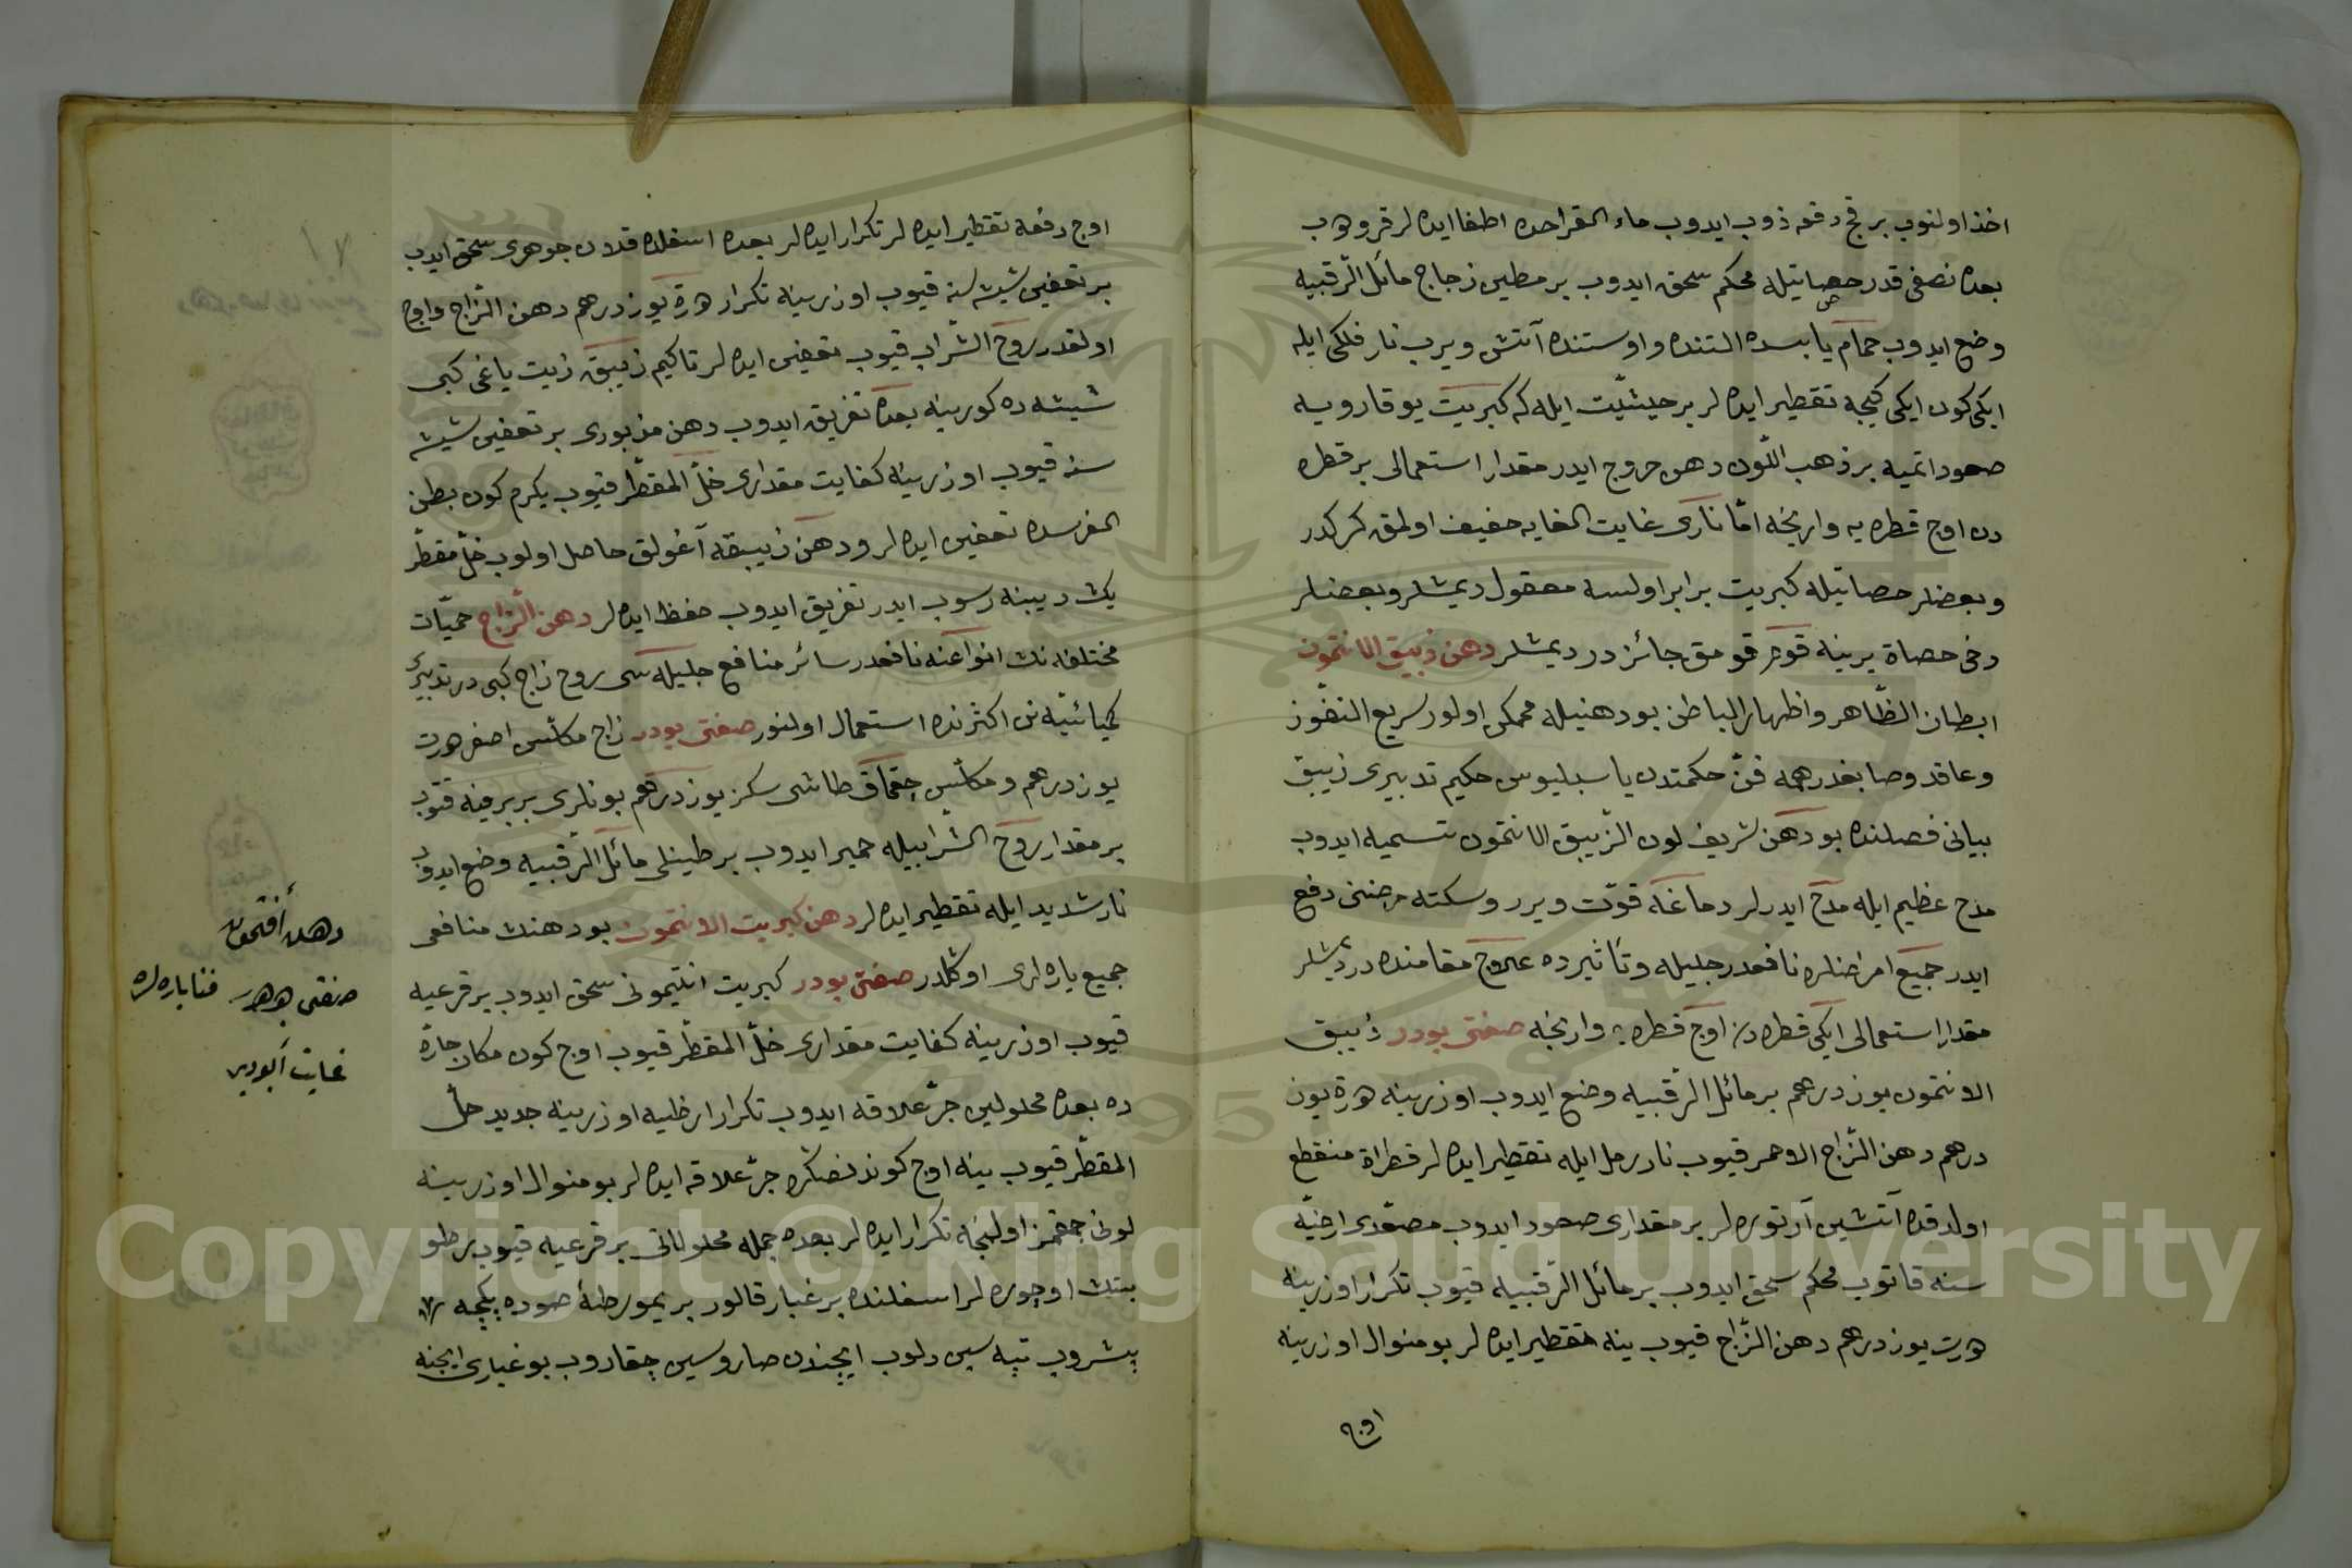 اخذ اولنوب بر قچ دفعه ذوب ايدوب ماء القراحده اطفا ايده لر قوروب
بعده نصفى قدر حصاتيله محكم سحق ايدوب بر مطين زجاج مائل الرقبيه
وضع ايدوب حمام يابسده التنده و اوستنده آتش ويرب نار فلكى ايله
ايكى كون ايكى كيجه تقطير ايده لر بر حيثيّت ايله كه كبريت يوقارويه
صعود اتميه بر ذهب اللّون دهن خروج ايدر مقدار استعمالى بر قطره
دن اوج قطره يه وارنجه امّا نارى غايت الغايه خفيف اولمق كركدر
وبعضلر حصاتيله كبريت برابر اولسه معقول ديمشلر وبعضلر
دخى حصاة يرينه قوم قومق جائزدر ديمشلر دهن زيبق الانتمون
ابطان الظّاهر واظهار الباطن بو دهنيله ممكن اولور سريع النفوز
وعاقد وصابغدر همه فنّ حكمتدن باسيليوس حكيم تدبيرى زيبق
بيانى فصلنده بو دهن شريف لون الزّيبق الانتمون تسميه ايدوب
مدح عظيم ايله مدح ايدرلر دماغه قوّت ويرر وسكته مرضنى دفع
ايدر جميع امراضلره نافعدر جليله وتأثيرده علاج مقامنده در ديمشلر
مقدار استعمالى ايكى قطره دن اوج قطره يه وارنجه صفتى بودر زيبق
الانتمون يوز درهم بر مائل الرّقبيه وضع ايدوب اوزرينه هرة يوز
درهم دهن الزّاج الاحمر قيوب نار رمل ايله تقطير ايده لر قطراة منقطع
اولدقده آتشين آرتوره لر بر مقدارى صعود ايدوب مصعّدى ارضيّه
سنه قاتوب محكم سحق ايدوب بر مائل الرّقبيه قيوب تكرار اوزرينه
هريت يوز درهم دهن الزّاج قيوب ينه تقطير ايده لر بو منوال اوزرينه
اوج
اوج دفعه تقطير ايده لر تكرار ايده لر بعده اسفلده قلان جوهرى سحق ايدب
بر تعفين شيشه سنه قيوب اوزرينه تكرار هرة يوز درهم دهن الزّاج واوج
اولقدر روح الشّراب قيوب تعفين ايده لر تاكيم زيبق زيت ياغى كبى
شيشه ده كورينه بعده تفريق ايدوب دهن مزبورى بر تعفين شيشه
سنه قيوب اوزرينه كفايت مقدارى خلّ المقطّر قيوب يكرم كون بطن
الفرسده تعفين ايده لر و دهن زيبقه آغولق حاصل اولوب خلّ مقطّر
يك ديبنه رسوب ايدر تفريق ايدوب حفظ ايده لر دهن الزّاج حميّات
مختلفه نك انواعنه نافعدر سائر منافع جليله سى روح زاج كبى در تدبير
كيميائيّه نن اكثرنده استعمال اولنور صفتى بودر زاج مكلّس اصفر هرت
يوز درهم و مكلّس چقماق طاشى سكز يوز درهم بونلرى بر برينه قتوب
بر مقدار روح الشّرابيله خمير ايدوب بر طينلى مائل الرّقبيه وضع ايدوب
نار شديد ايله تقطير ايده لر دهن كبريت الانتمون بو دهنك منافعى
جميع ياره لرى اوكلدر صفتى بودر كبريت انتيمونى سحق ايدوب بر قرعيه
قيوب اوزرينه كفايت مقدارى خلّ المقطّر قيوب اوج كون مكان حارّه
ده بعده محلولين جرّ علاقه ايدوب تكرار ارظيه اوزرينه جديد خلّ
المقطّر قيوب ينه اوج كوندنصكره جرّ علاقه ايده لر بو منوال اوزرينه
لونى چقمز اولنجه تكرار ايده لر بعده جمله محلولاتى بر قرعيه قيوب رطو
بتك اوچوره لر اسفلنده بر غبار قالور بر يمورطهٔ صوده پكچه
پشروب تپه سين دلوب ايچندن صاروسين چقاروب بو غبارى ايچنه
دهن أفتمون
صنفتى جوهر فنا ياره لره
غايت أيودير